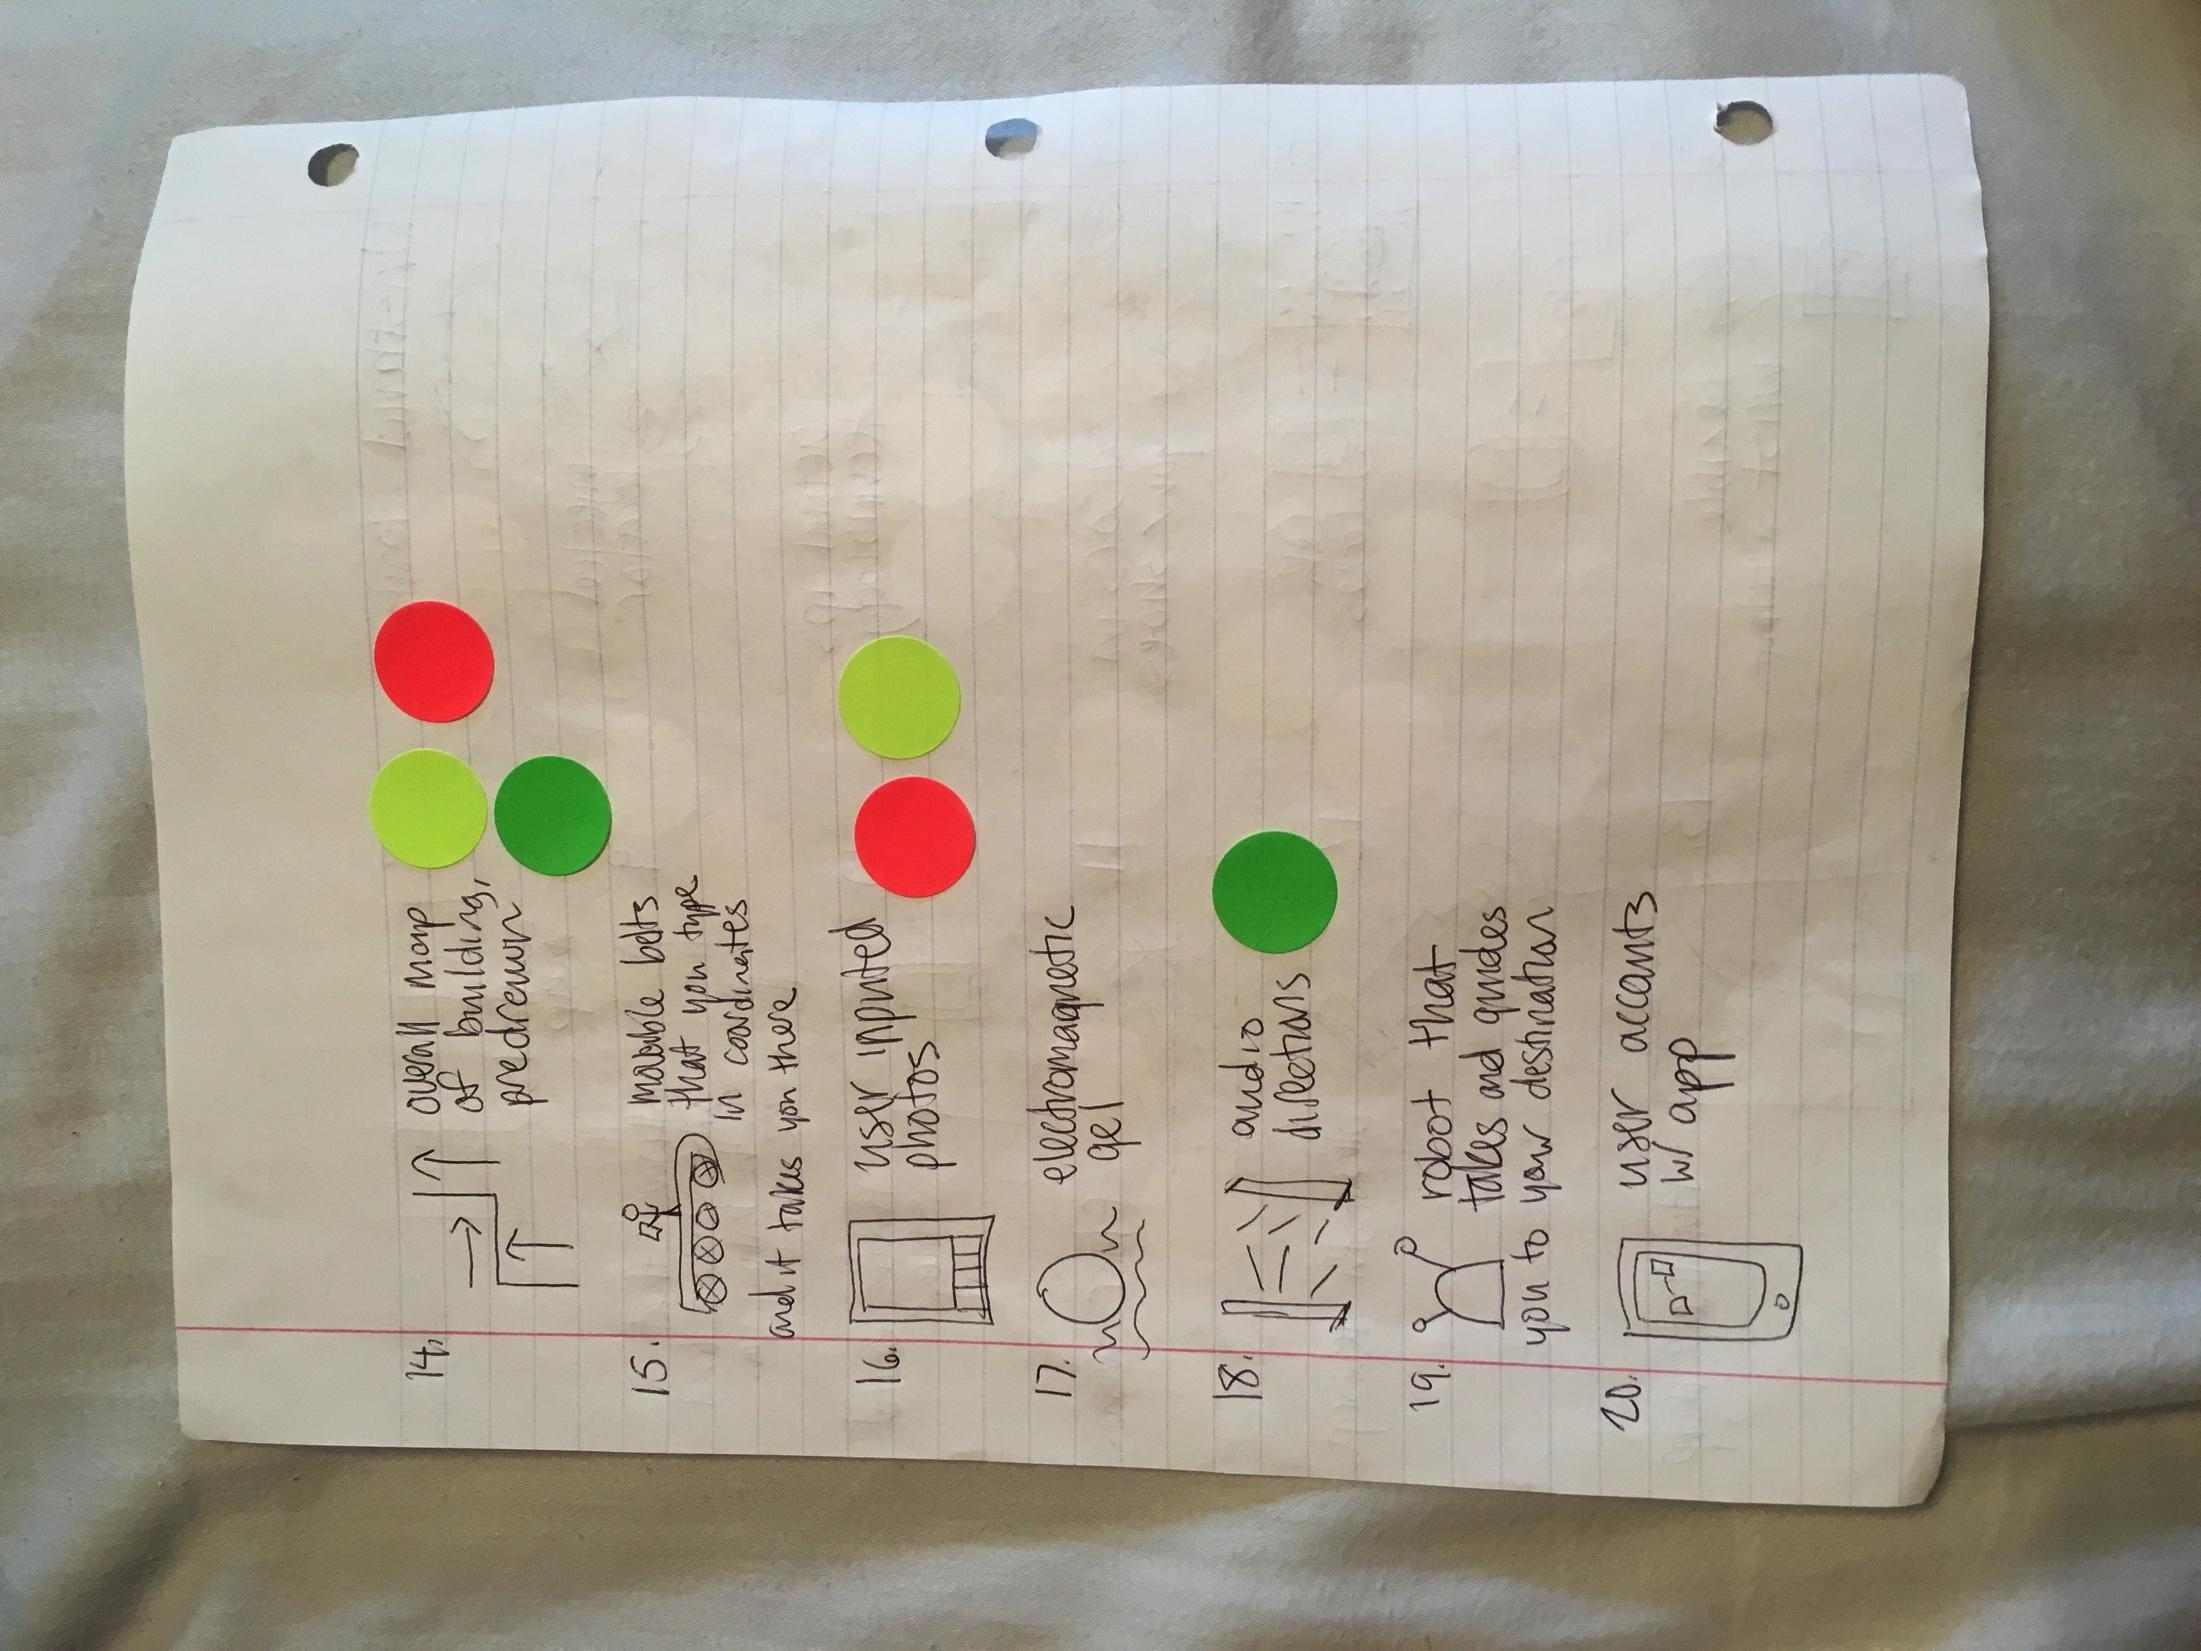 14. overall map
of building,
predrawn
15. movable belts
that you type
in coordinates
and it takes you there
16. user inputted
photos
17. electromagnetic
gel
18. audio
directions
19. robot that
takes and guides
you to your destination
20. user accounts
w/ app